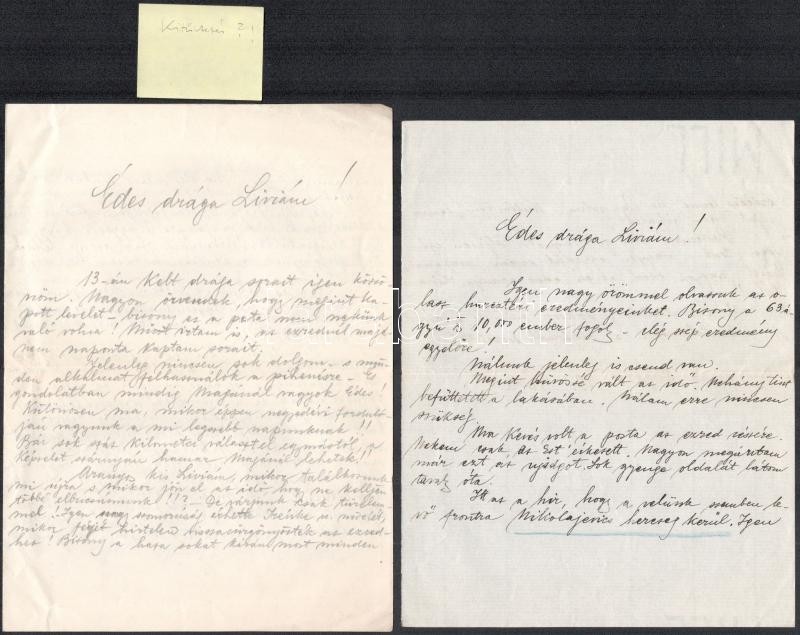 Kitüntetés?!
Édes drága Liviám!
13-án kelt drága sorait igen köszö-
nöm. Nagyon örvendek, hogy megint ka-
pott levelet – bizony ez a posta nem nekünk
való volna! Mint írtam is, az ezrednél majd-
nem naponta kaptam sorait.
Jelenleg nincsen sok dolgom s min-
den alkalmat felhasználok a pihenésre. És
gondolatban mindig Magánál vagyok Édes!
Különösen ma, mikor éppen negyedévi forduló-
ján vagyunk a mi legszebb napunknak!!
Bár sok száz kilométer választ el egymástól, a
képzelet szárnyain hamar Magánál lehetek!!
Aranyos kis Liviám, mikor találkozunk
mi újra s mikor jön el az idő hogy ne kelljen
többé elbúcsúznunk!!? De várjunk csak türelem-
mel! Igen nagy szomorúság érhette Irénke
mikor férjét hirtelen visszasürgönyözték az ezred-
hez! Bizony a haza sokat kíván most minden
Édes drága Liviám!
Igen nagy örömmel olvassuk az o-
lasz harctéri eredményeinket. Bizony a 63 á-
gyú és 10,000 ember fogoly – elég szép eredmény
egyelőre!
Nálunk jelenleg is csend van.
Megint hűvössé vált az idő. Néhány tiszt
befűttetett a lakásában. Nálam erre nincsen
szükség.
Ma kevés volt a posta az ezred részére.
Nekem csak az Est érkezett. Nagyon meguntam
már ezt az újságot. Sok gyenge oldalát látom
tavaly óta.
Itt az a hír, hogy a velünk szemben le-
vő frontra Nikolajevics herceg kerül. Igen